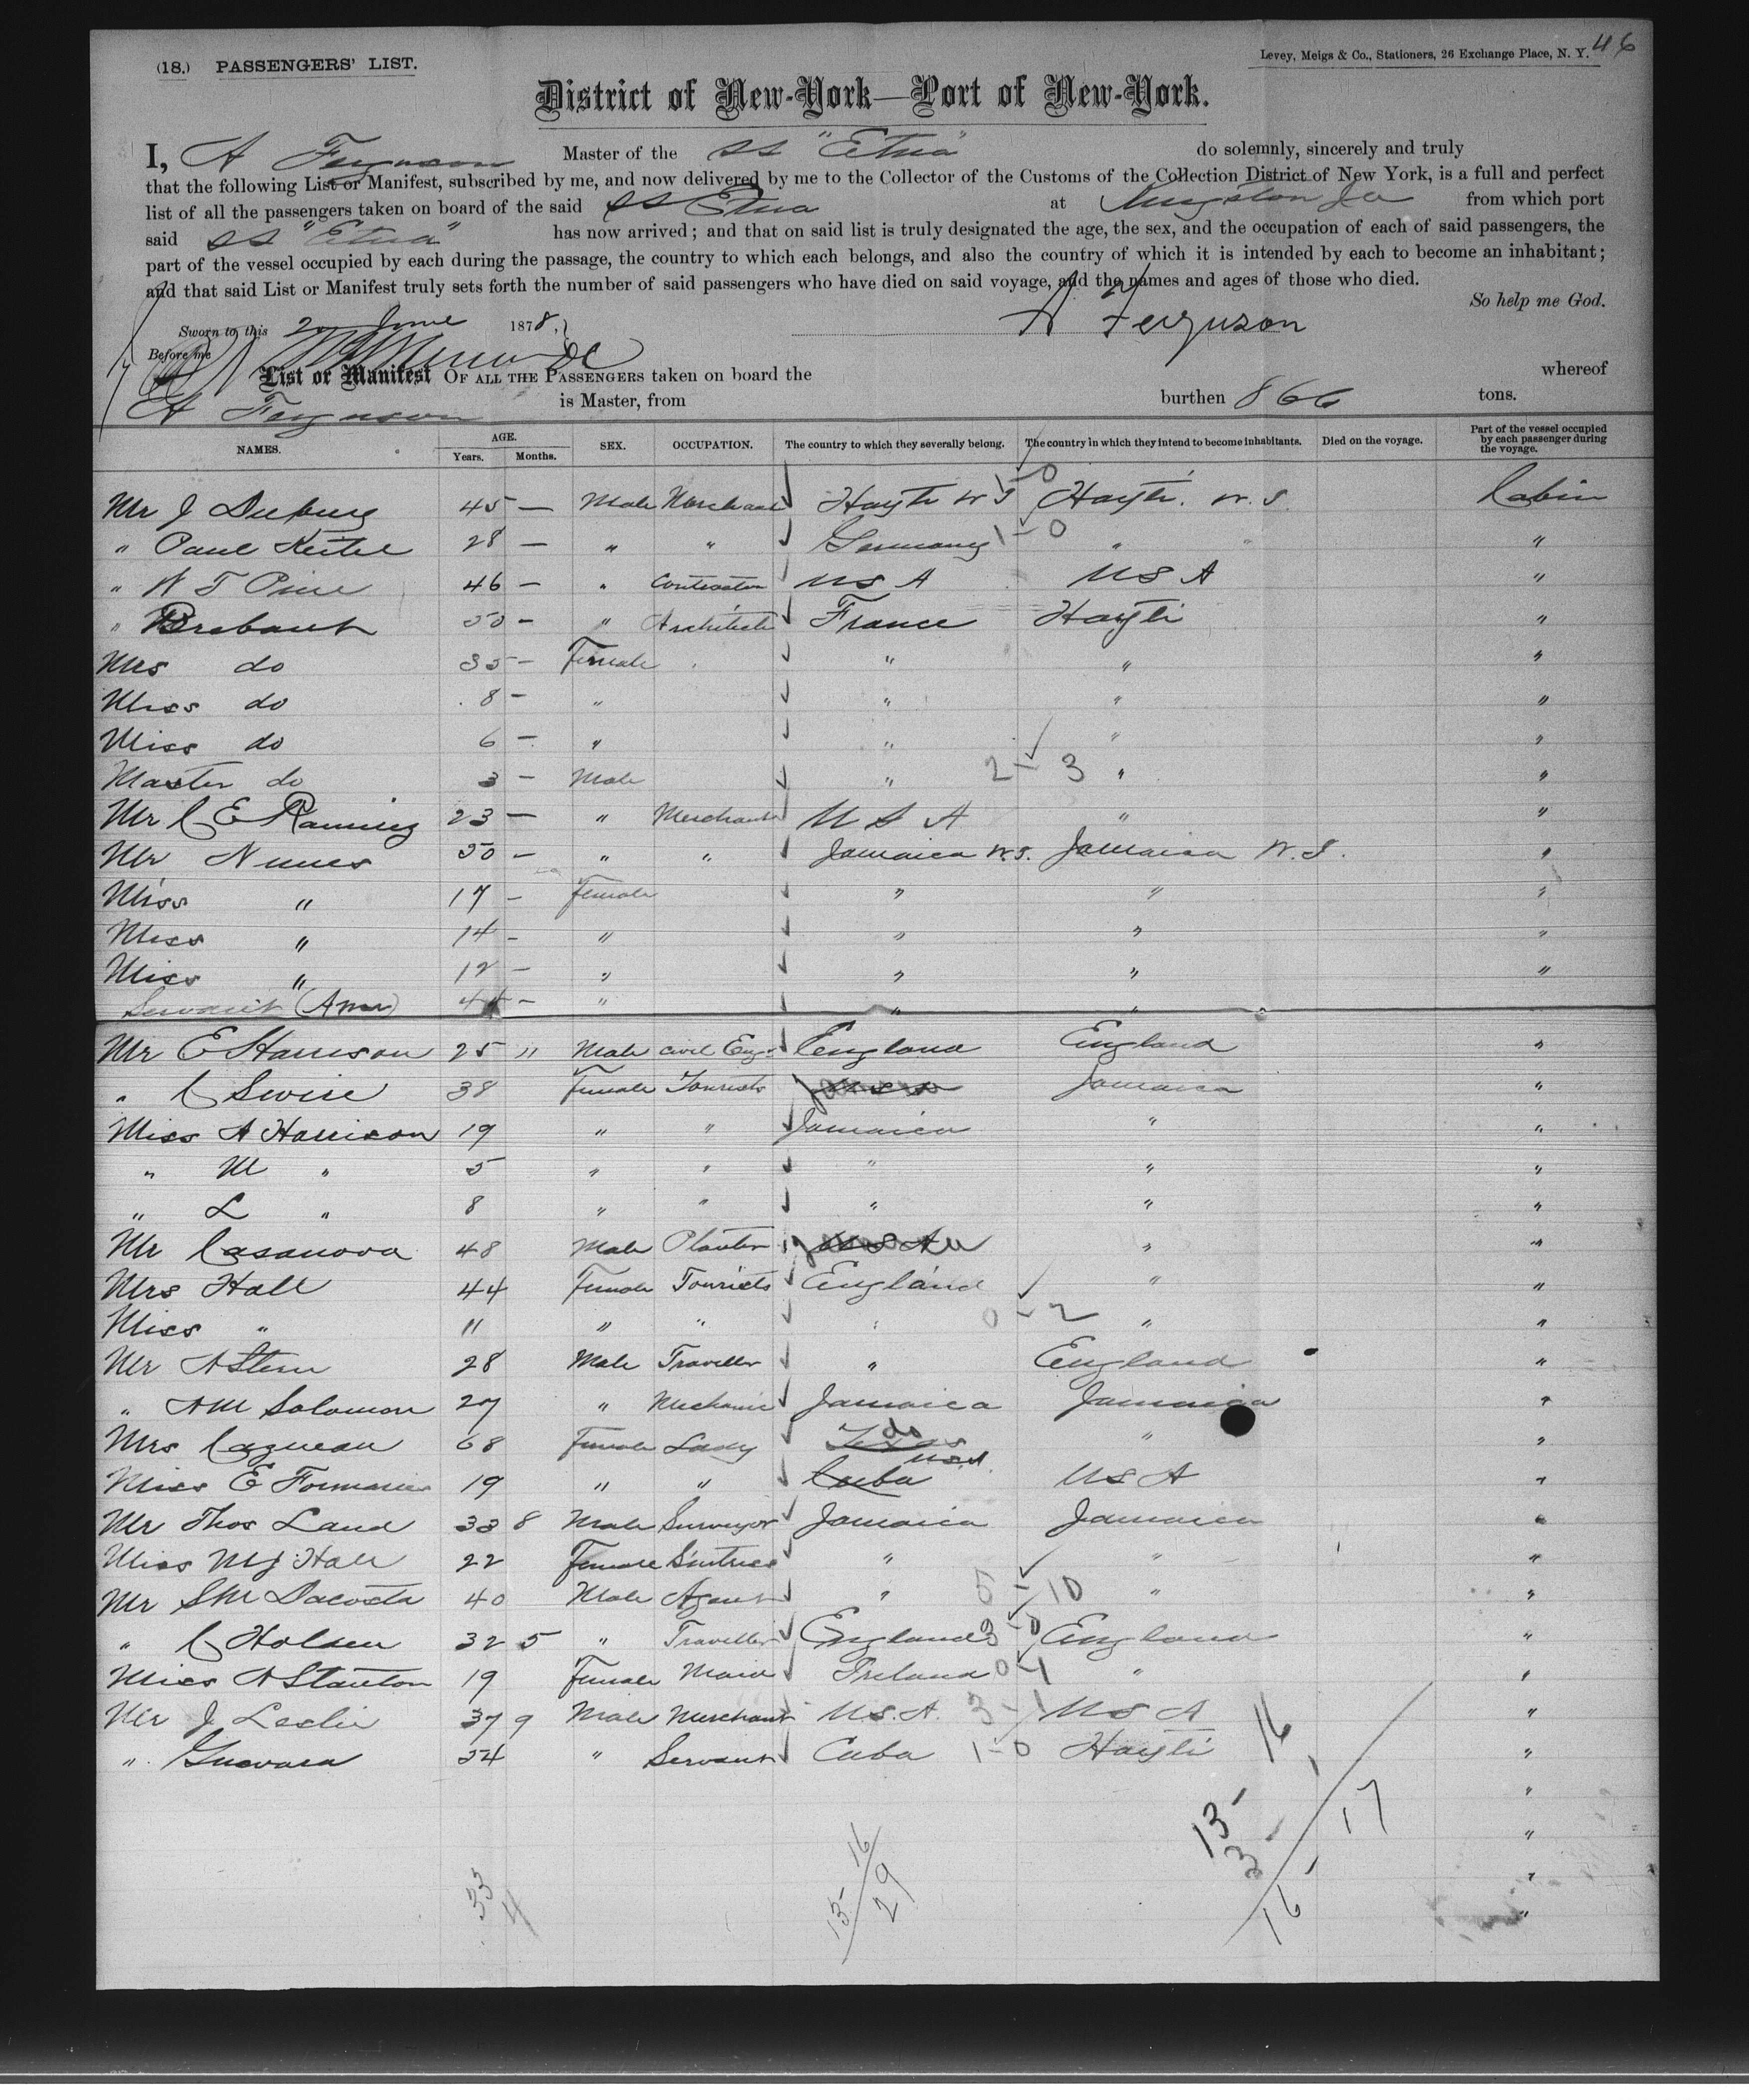 46
(18.) PASSENGERS' LIST. Levey, Meigs & Co., Stationers, 26 Exchange Place, N. Y.
District of New-York—Port of New-York.
I, A Ferguson Master of the SS "Etna" do solemnly, sincerely and truly
that the following List or Manifest, subscribed by me, and now delivered by me to the Collector of the Customs of the Collection District of New York, is a full and perfect
list of all the passengers taken on board of the said SS Etna at Kingston Ja from which port
said SS "Etna" has now arrived; and that on said list is truly designated the age, the sex, and the occupation of each of said passengers, the
part of the vessel occupied by each during the passage, the country to which each belongs, and also the country of which it is intended by each to become an inhabitant;
and that said List or Manifest truly sets forth the number of said passengers who have died on said voyage, and the names and ages of those who died.
So help me God.
Sworn to this June 1878, A Ferguson
Before me
List or Manifest OF ALL THE PASSENGERS taken on board the whereof
A Ferguson is Master, from burthen 866 tons.
NAMES. AGE. Years. Months. SEX. OCCUPATION. The country to which they severally belong. The country in which they intend to become inhabitants. Died on the voyage. Part of the vessel occupied by each passenger during the voyage.
Mr J 45 — Male Merchant Hayti W I 1-0 Hayti. W. I. Cabin
" Paul Keitel 28 — " " Germany 1-0 " " "
" W T Pine 46 — " Contractor US A US A "
" Brebant 50 — " Architect France Hayti "
Mrs do 35 — Female " " "
Miss do 8 — " " " "
Miss do 6 — " " " "
Master do 3 — Male " 2-3 " "
Mr C E 23 — " Merchant U S A " "
Mr Nunes 50 — " " Jamaica W.I. Jamaica W. I. "
Miss " 17 — Female " " "
Miss " 14 — " " " "
Miss " 12 — " " " "
Servant 44 — " " "
Mr E Harrison 25 " Male Civil Engr England England "
" C Swire 38 Female Tourists Jamaica "
Miss A Harrison 19 " " Jamaica " "
" M " 5 " " " " "
" L " 8 " " " " "
Mr Casanova 48 Male Planter " "
Mrs Hall 44 Female Tourists England " "
Miss " 11 " " " 0-2 " "
Mr A Stern 28 Male Traveller " England "
" AM Solomon 27 " Mechanic Jamaica Jamaica "
Mrs Cazneau 68 Female Lady Texas do " "
Miss E 19 " " Cuba USA US A "
Mr Thos Land 33 8 Male Surveyor Jamaica Jamaica "
Miss MJ Hall 22 Female " " "
Mr SM Dacosta 40 Male Agent " 5-10 " "
" C Holsen 32 5 " Traveller England 3-0 England "
Miss A Stanton 19 Female Maid Ireland 0-1 " "
Mr J Leslie 37 9 Male Merchant U.S. A. 3-1 US A "
" Guevara 24 " Servant Cuba 1-0 Hayti "
16
1
17
13
3
16
16
13
29
33
4